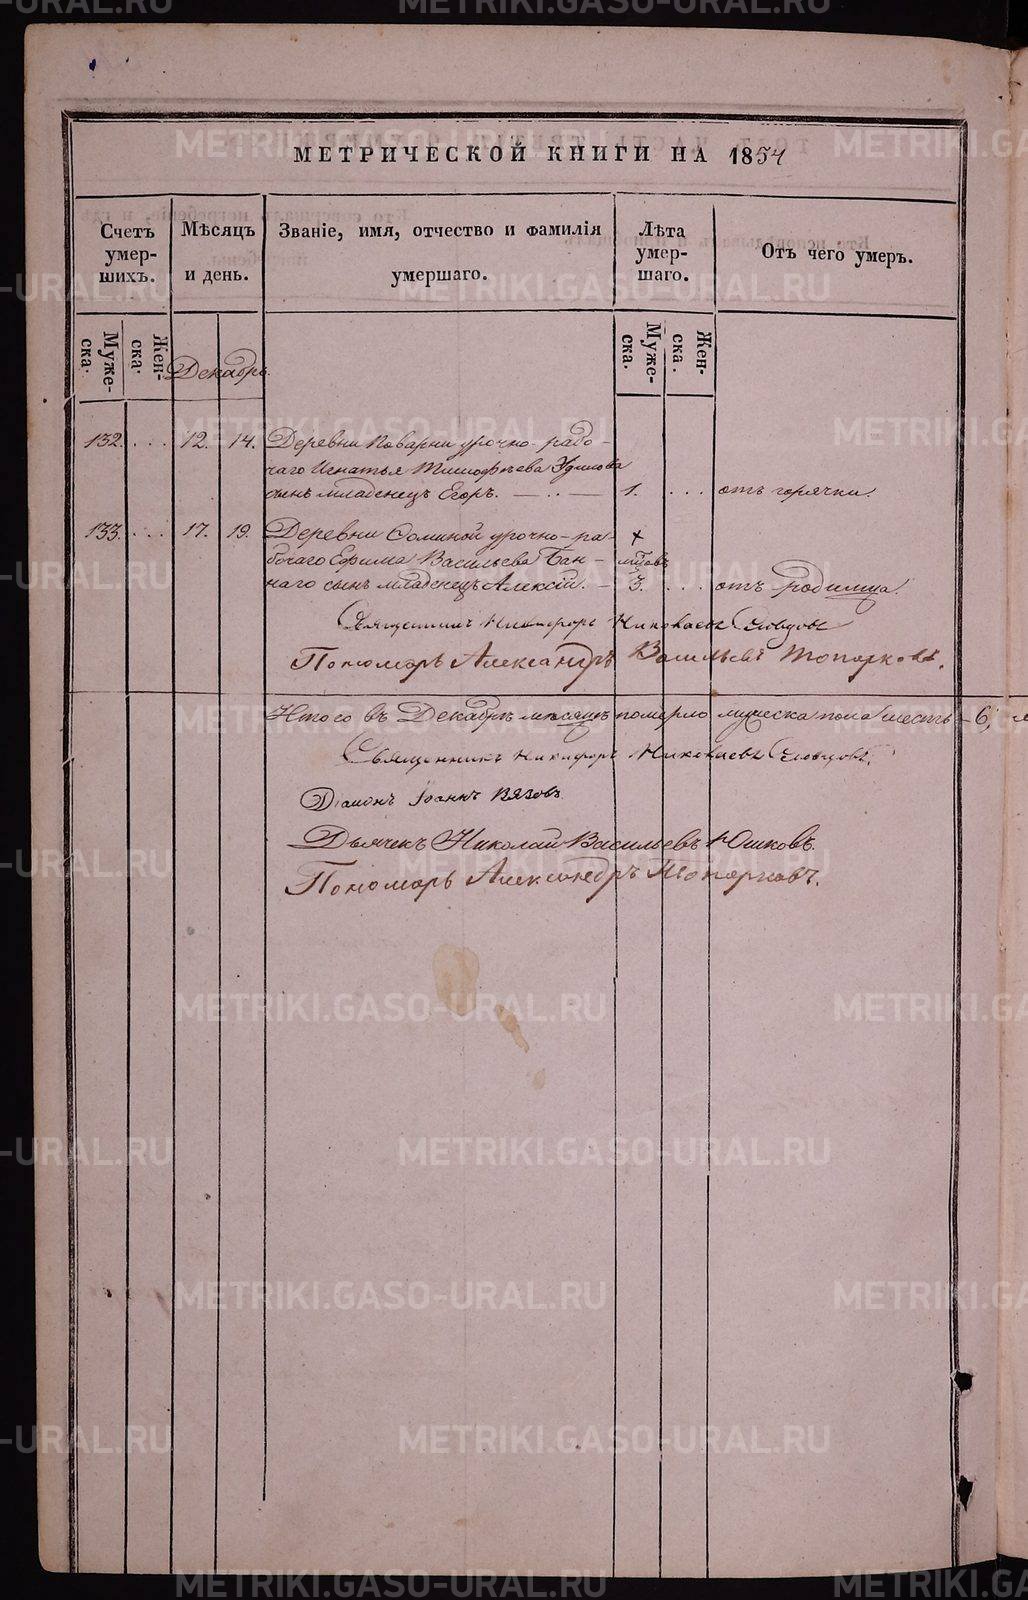 МЕТРИЧЕСКОЙ КНИГИ НА 1854
Счетъ умерших. Мѣсяцъ и день. Званіе, имя, отчество и фамилія умершаго. Лѣта умершаго. Отъ чего умеръ.
Мужеска. Женска. Декабрь. Мужеска. Женска.
132. . . . 12. 14. Деревни Поварни урочно-рабо-
чаго Игнатья Тимофѣева
сынъ младенецъ Егоръ. 1. . . . отъ горячки.
133. . . . 17. 19. Деревни Соминой урочно-ра-
бочаго Ефима Васильева Бан-
наго сынъ младенецъ Алексій. 3. . . . отъ родимца.
Священникъ Никифоръ Николаевъ Словцовъ
Пономарь Александръ Васильевъ Топорковъ.
Итого въ Декабрѣ мѣсяцѣ померло мужеска пола шесть - 6,
Священникъ Никифоръ Николаевъ Словцовъ.
Діаконъ Іоаннъ Вязовъ
Дьячекъ Николай Васильевъ Юшковъ.
Пономарь Александръ Топорковъ.
METRIKI.GASO-URAL.RU